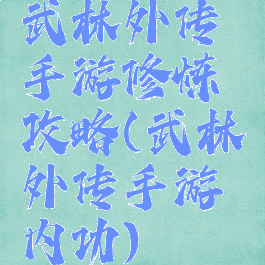 武林外传
手游修炼
攻略(武林
外传手游
内功)